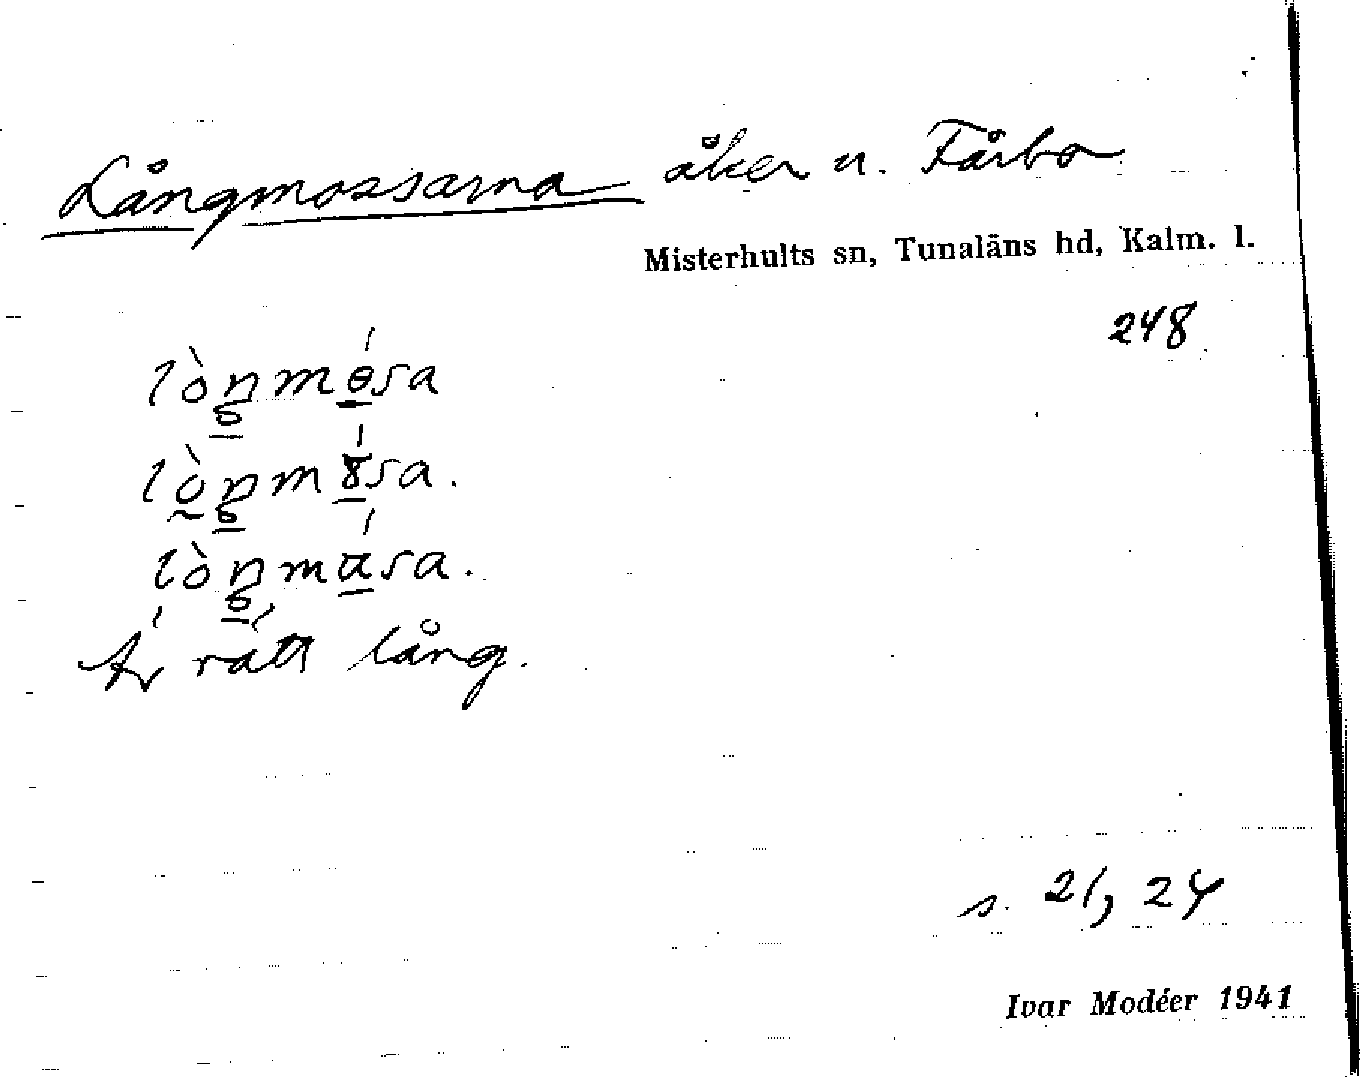 Långmossarna åker u. Fårbo
Misterhults sn, Tunaläns hd, Kalm. l.
248
Är rätt lång.
s. 21, 24
Ivar Modéer 1941